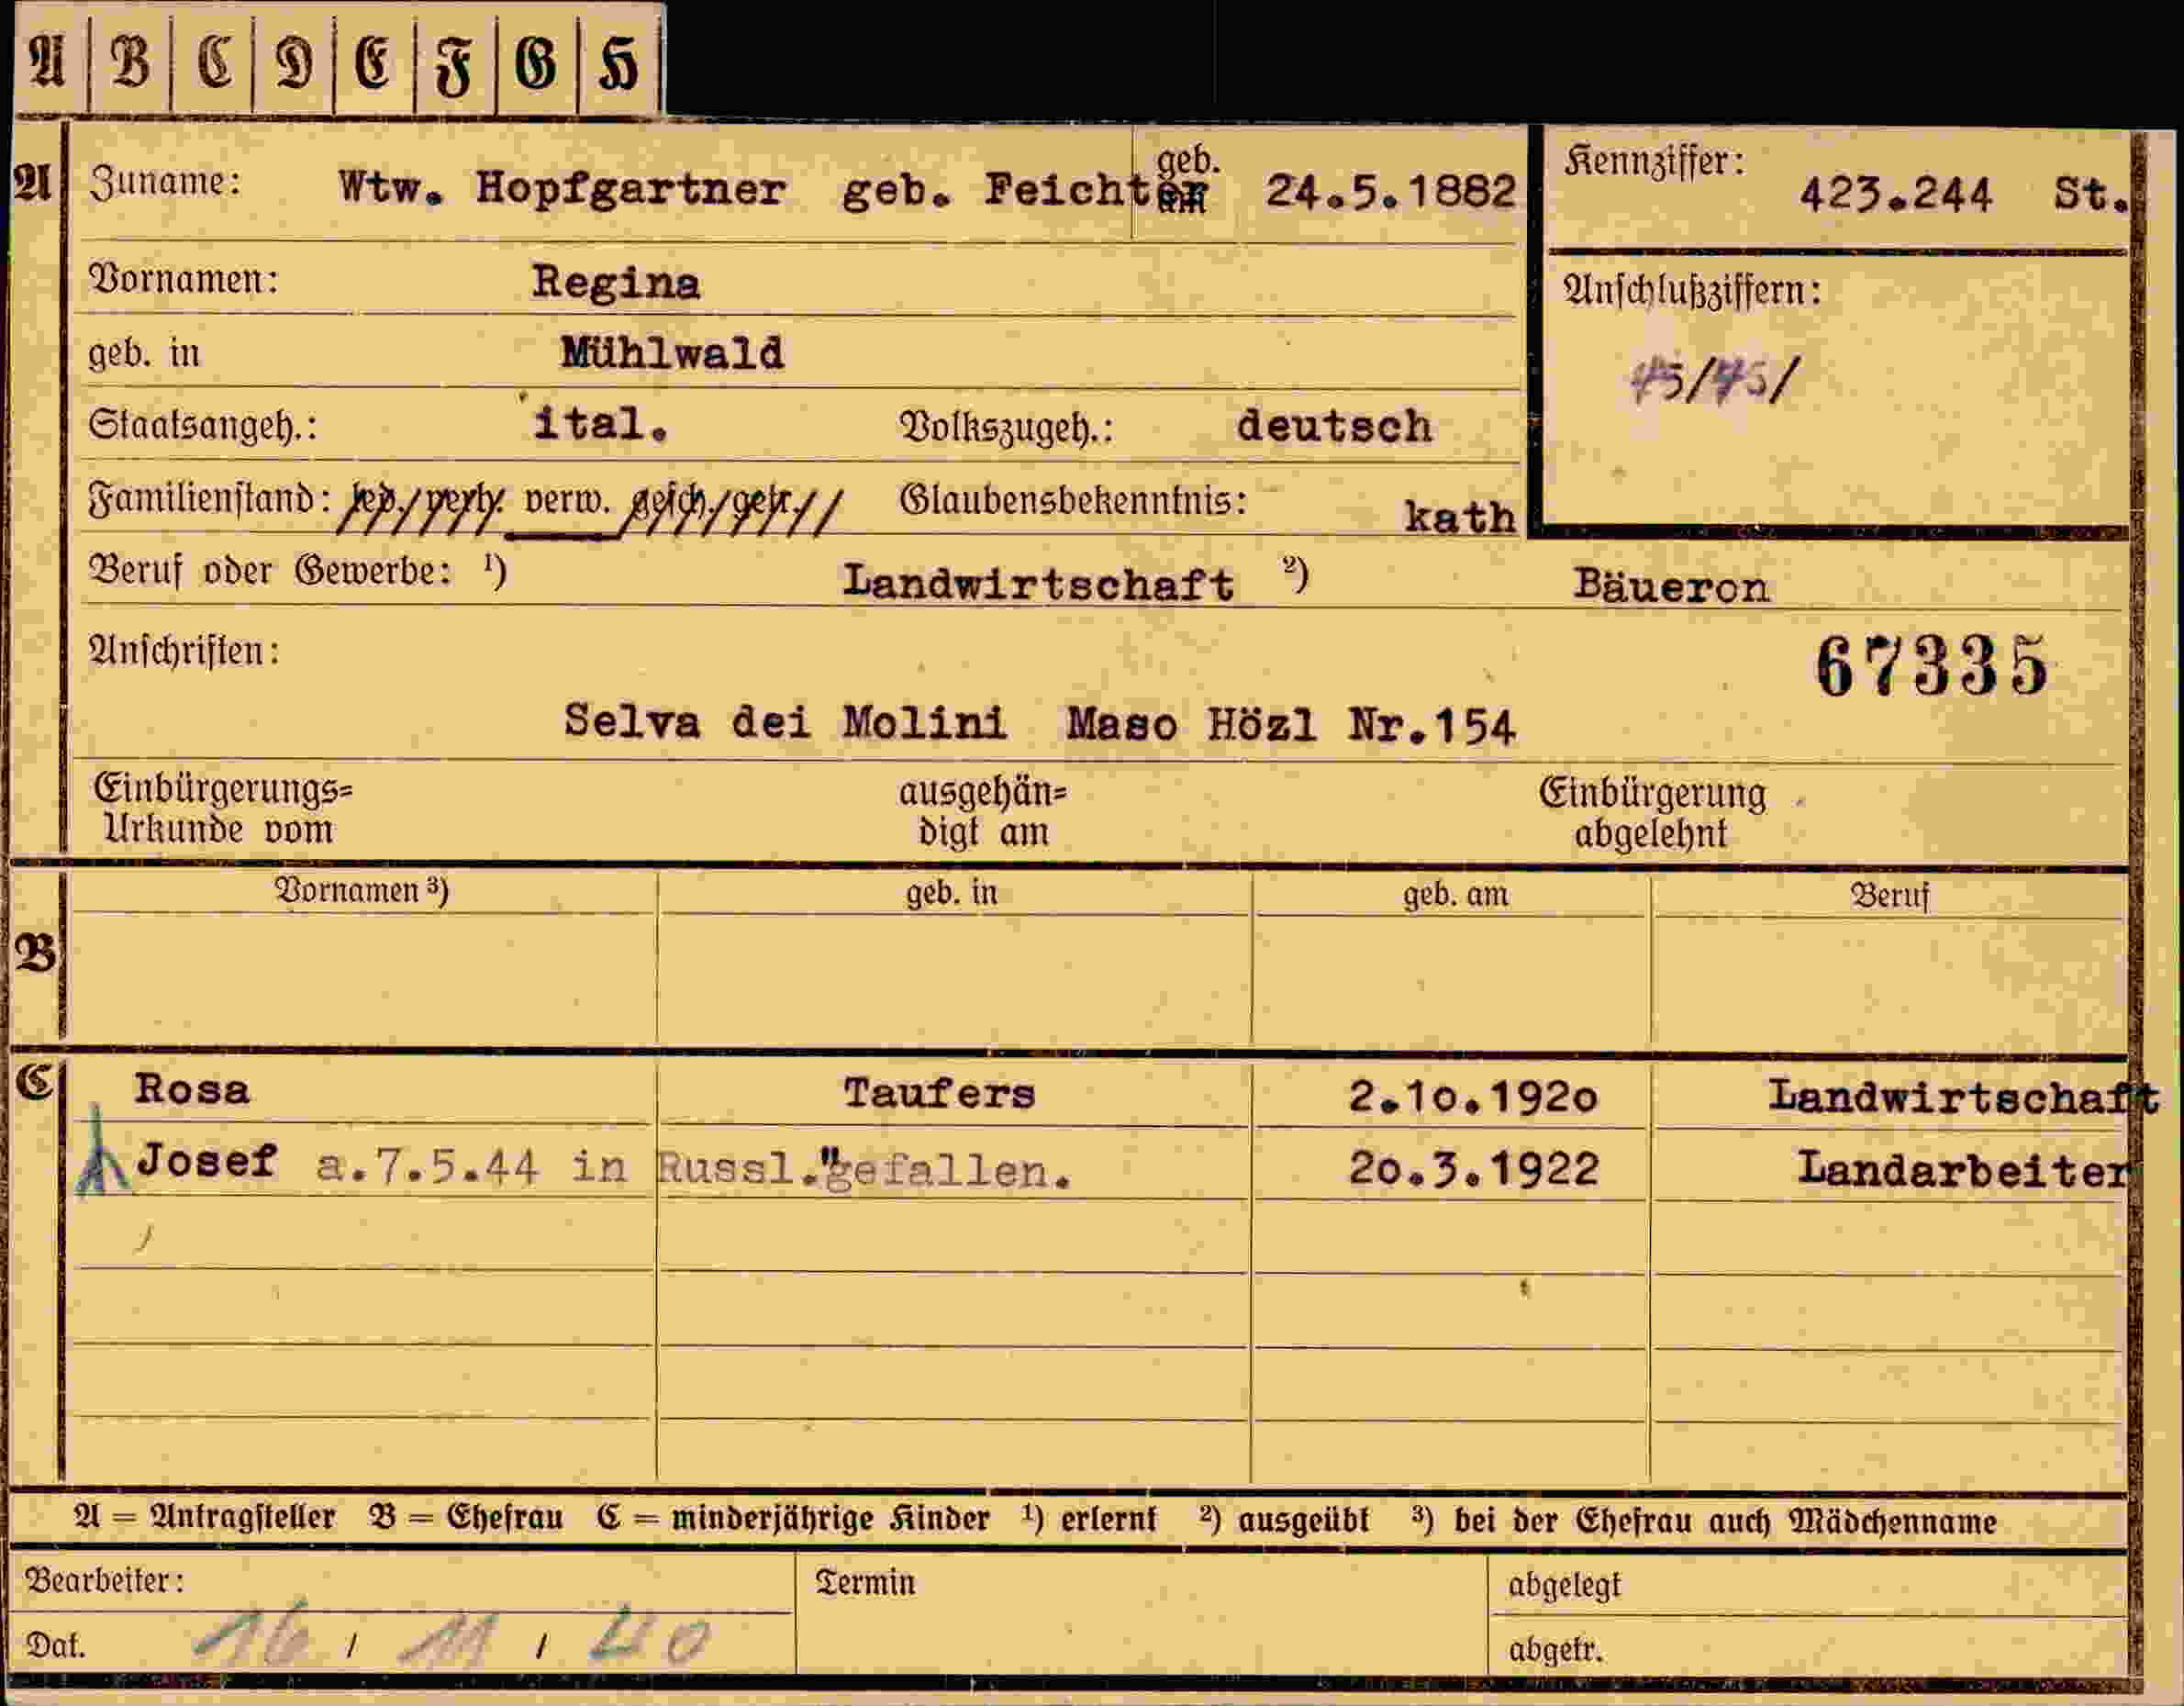 A B C D E F G H
A Zuname: Wtw. Hopfgartner geb. Feichter geb. 24.5.1882 Kennziffer: 423.244 St.
Vornamen: Regina Anschlußziffern:
geb. in Mühlwald
Staatsangeh.: ital. Volkszugeh.: deutsch
Familienstand: led./verh. verw. gesch./getr. Glaubensbekenntnis: kath
Beruf oder Gewerbe: ¹) Landwirtschaft ²) Bäueron
Anschriften: 67335
Selva dei Molini Maso Hözl Nr.154
Einbürgerungs= ausgehän= Einbürgerung
Urkunde vom digt am abgelehnt
Vornamen ³) geb. in geb. am Beruf
B
C Rosa Taufers 2.10.1920 Landwirtschaft
Josef a.7.5.44 in Russl."gefallen. 20.3.1922 Landarbeiter
A = Antragsteller B = Ehefrau C = minderjährige Kinder ¹) erlernt ²) ausgeübt ³) bei der Ehefrau auch Mädchenname
Bearbeiter: Termin abgelegt
Dat. 16 / 11 / 40 abgetr.